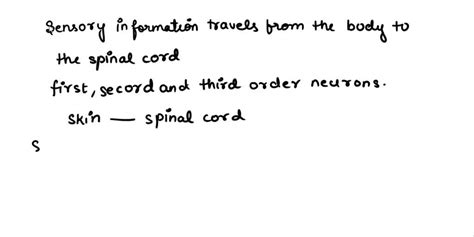 Sensory information travels from the body to
the spinal cord
first, second and third order neurons.
skin — spinal cord
S